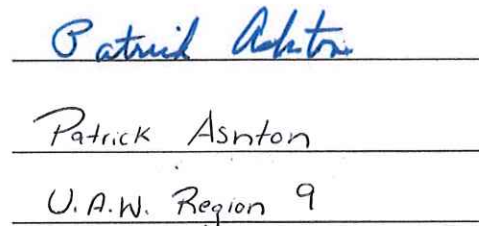 Patrick Ashton
Patrick Ashton
U.A.W. Region 9